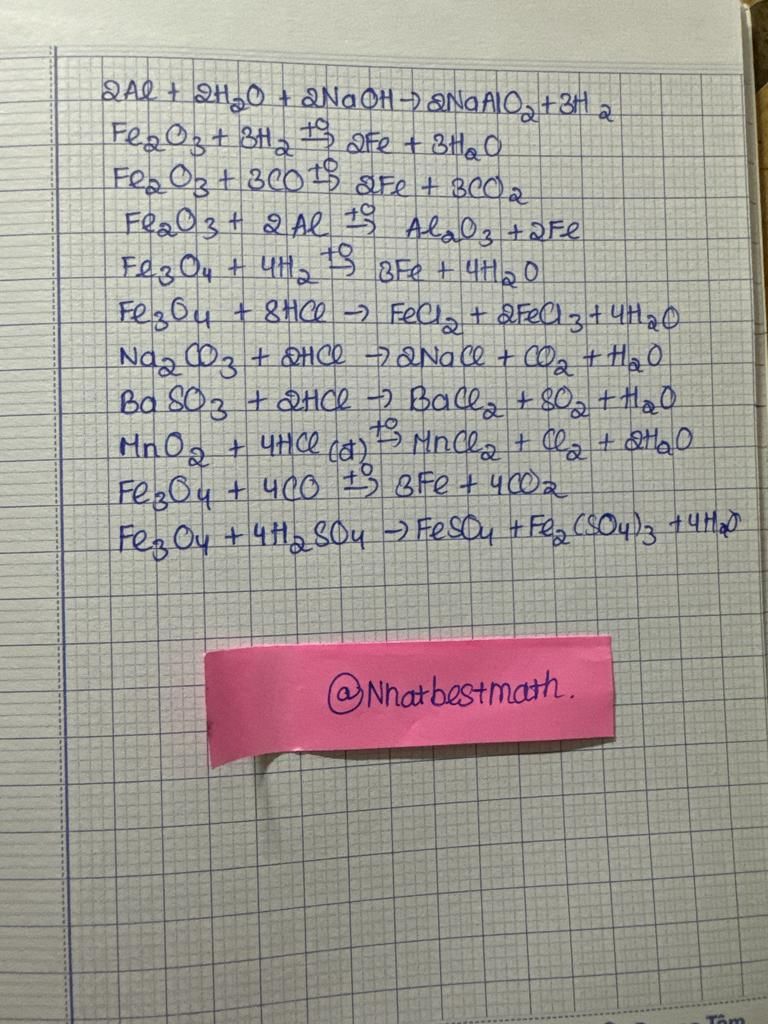 2Al + 2H₂O + 2NaOH → 2NaAlO₂ + 3H₂
Fe₂O₃ + 3H₂ →(t°) 2Fe + 3H₂O
Fe₂O₃ + 3CO →(t°) 2Fe + 3CO₂
Fe₂O₃ + 2Al →(t°) Al₂O₃ + 2Fe
Fe₃O₄ + 4H₂ →(t°) 3Fe + 4H₂O
Fe₃O₄ + 8HCl → FeCl₂ + 2FeCl₃ + 4H₂O
Na₂CO₃ + 2HCl → 2NaCl + CO₂ + H₂O
BaSO₃ + 2HCl → BaCl₂ + SO₂ + H₂O
MnO₂ + 4HCl (đ) →(t°) MnCl₂ + Cl₂ + 2H₂O
Fe₃O₄ + 4CO →(t°) 3Fe + 4CO₂
Fe₃O₄ + 4H₂SO₄ → FeSO₄ + Fe₂(SO₄)₃ + 4H₂O
@Nhatbestmath.
Tâm